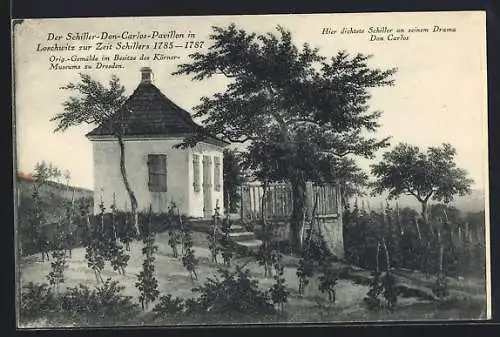 Der Schiller-Don-Carlos-Pavillon in
Loschwitz zur Zeit Schillers 1785—1787
Orig.-Gemälde im Besitze des Körner-
Museums zu Dresden.
Hier dichtete Schiller an seinem Drama
Don Carlos